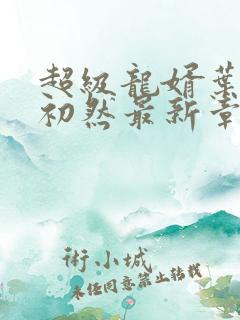 超級龍婿葉
初然最新章
術小城
未任同意禁止轉載